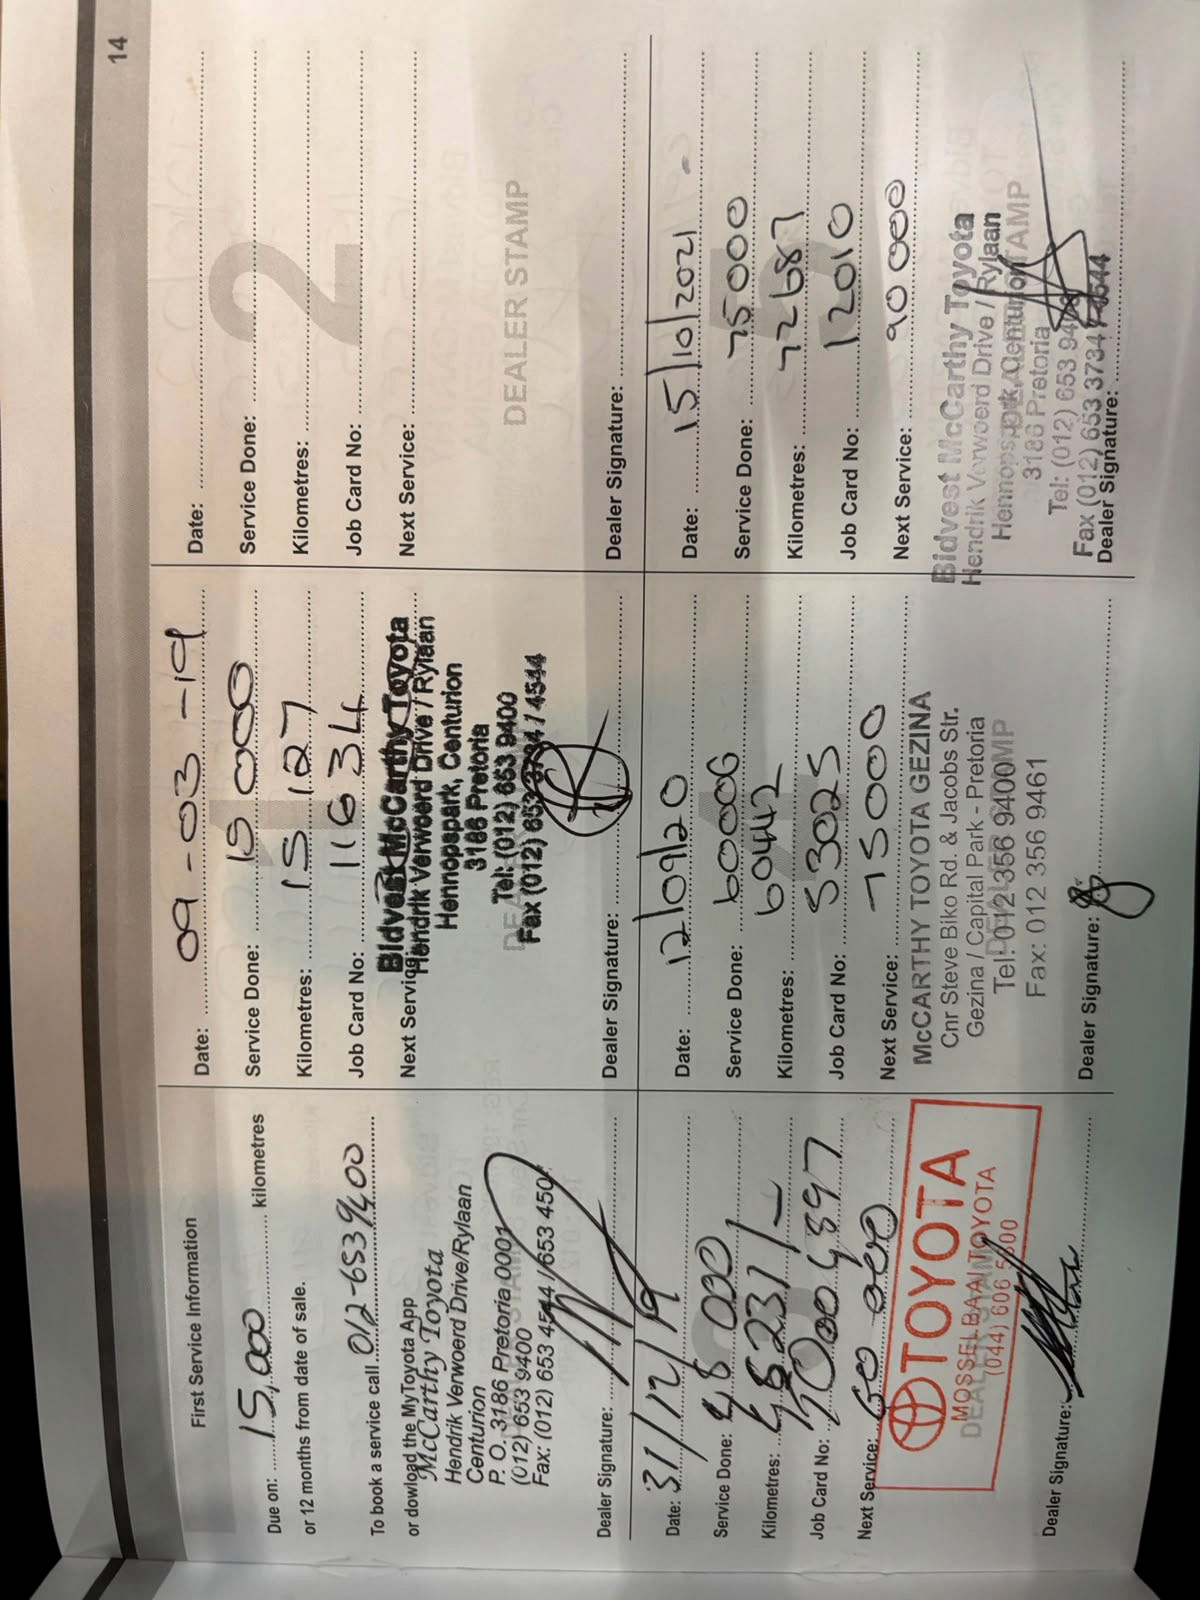 14
First Service Information
Due on: 15,000 kilometres
or 12 months from date of sale.
To book a service call 012-6539400
or dowload the MyToyota App
McCarthy Toyota
Hendrik Verwoerd Drive/Rylaan
Centurion
P. O. 3186 Pretoria 0001
(012) 653 9400
Fax: (012) 653 4544 / 653 450
Dealer Signature:
1
Date: 09-03-19
Service Done: 15 000
Kilometres: 15 127
Job Card No: 11634
Next Service:
Bidvest McCarthy Toyota
Hendrik Verwoerd Drive / Rylaan
Hennopspark, Centurion
3186 Pretoria
Tel: (012) 653 9400
Fax (012) 653 3734 / 4544
Dealer Signature:
2
Date:
Service Done:
Kilometres:
Job Card No:
Next Service:
DEALER STAMP
Dealer Signature:
3
Date: 31/12/19
Service Done: 48 000
Kilometres: 48231
Job Card No:
Next Service: 60 000
TOYOTA
MOSSELBAAI TOYOTA
DEALER STAMP
(044) 606 5300
Dealer Signature:
4
Date: 12/09/20
Service Done: 60000
Kilometres: 60442
Job Card No: 53025
Next Service: 75000
McCARTHY TOYOTA GEZINA
Cnr Steve Biko Rd. & Jacobs Str.
Gezina / Capital Park - Pretoria
Tel: 012 356 9400
Fax: 012 356 9461
Dealer Signature:
5
Date: 15/10/2021
Service Done: 75000
Kilometres: 72687
Job Card No: 12010
Next Service: 90 000
Bidvest McCarthy Toyota
Hendrik Verwoerd Drive / Rylaan
Hennopspark, Centurion
3186 Pretoria
Tel: (012) 653 94
Fax (012) 653 3734 / 4544
Dealer Signature: